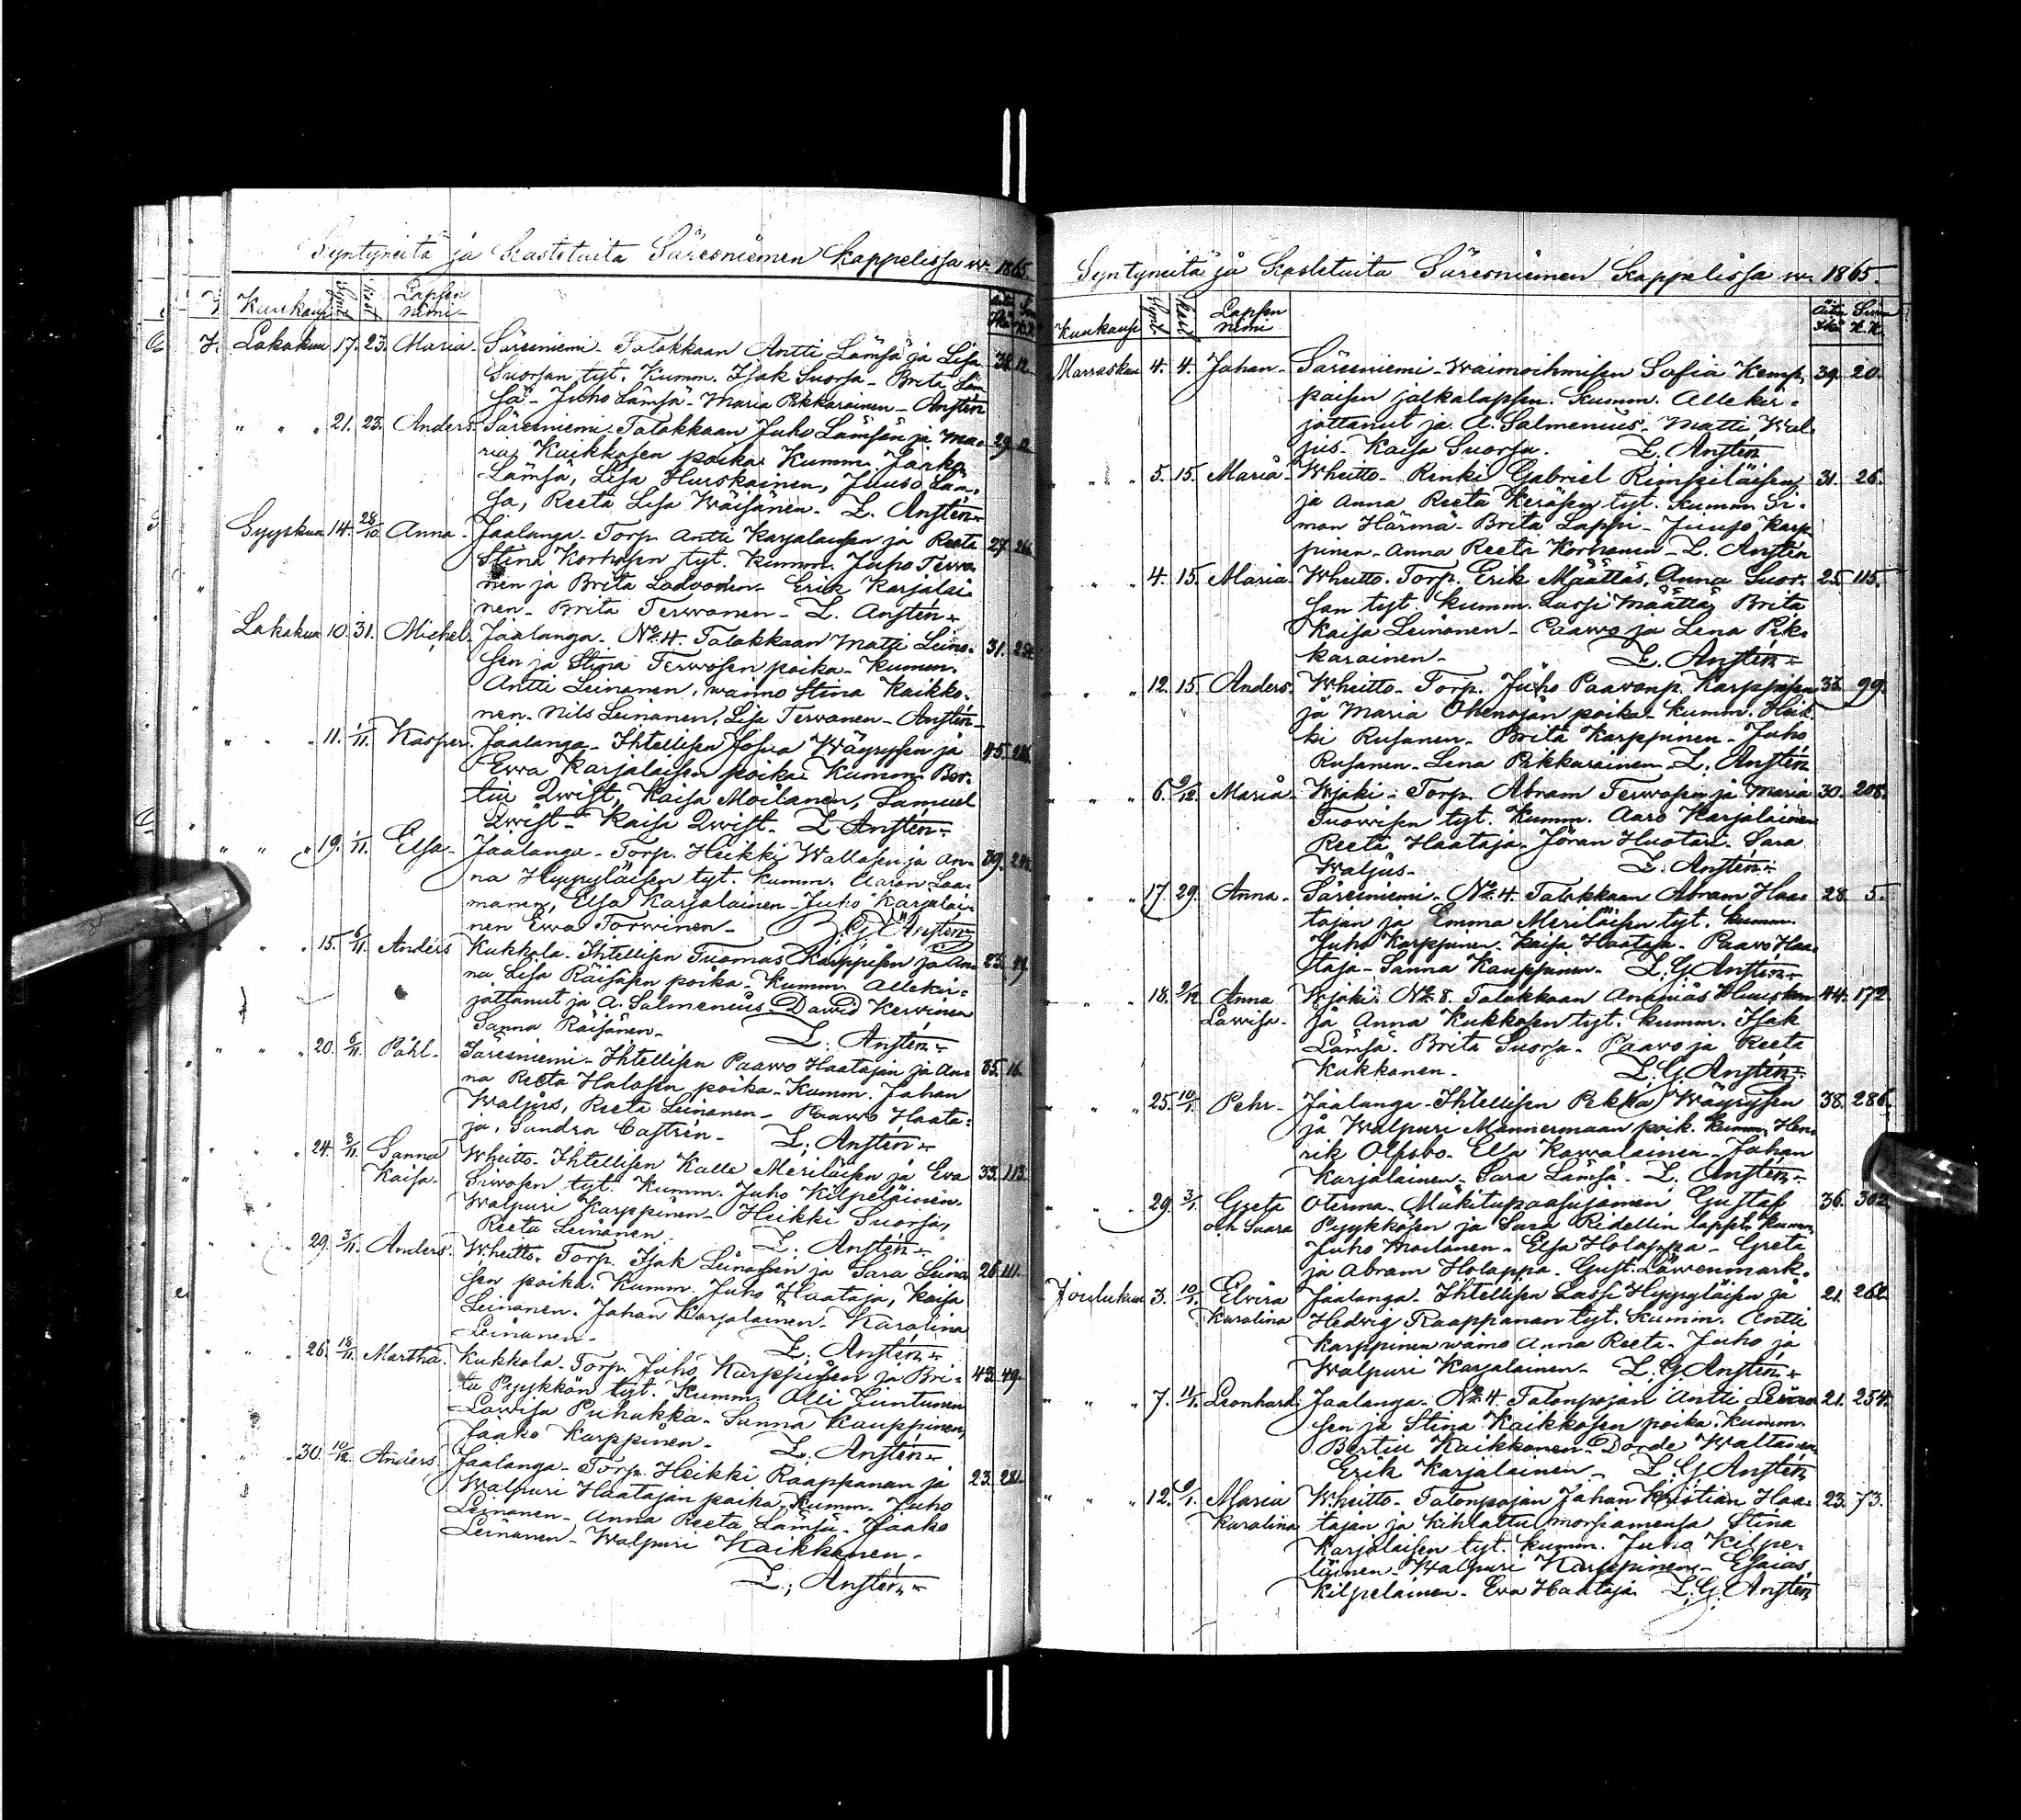 Syntyneitä ja Kastetuita Säresniemen Kappelissa w. 1865.
Kuukausi Synt. Kast. Lapsen nimi
Lokakuu 17. 23. Maria. Säresniemi. Talokkaan Antti Lämsä ja Lisa 38. 12.
Suorsan tyt. Kumm. Isak Suorsa - Brita Läm
sä - Juho Lämsä - Maria Pikkarainen - Anstén
" " " 21. 23. Anders. Säresniemi. Talokkaan Juho Lämsän ja Ma- 29. 12.
ria Kaikkosen poika. Kumm. Jaako
Lämsä, Lisa Huuskainen, Juuso Läm-
sä, Reeta Lisa Wäisänen. L. Anstén
Syyskuu 14. 28/10 Anna. Jaalanga. Torp. Antti Karjalaisen ja Reeta 27.
Stina Korhosen tyt. Kumm. Juho Terwo
nen ja Brita Laavonen. Erik Karjalai
nen. Brita Terwonen - L. Anstén
Lokakuu 10. 31. Michel. Jaalanga. No 4. Talokkaan Matti Leino- 31.
sen ja Stina Terwosen poika - Kumm.
Antti Leinonen, waimo Stina Kaikko-
nen. Nils Leinonen, Lisa Terwonen - Anstén
" " " 11. 1/11. Kasper. Jaalanga - Ihtellisen Josua Wäyrysen ja 45.
Ewa Karjalaisen poika. Kumm. Ber-
tiu Qwist, Kaisa Moilanen, Samuel
Qwist - Kaisa Qwist. L. Anstén
" " " 19. 1/11. Elsa. Jaalanga - Torp. Heikki Wallasen ja An- 39.
na Hyypyläisen tyt. Kumm. Aaron Loa-
manen, Elsa Karjalainen - Juho Karjalai-
nen Ewa Torwinen - L. G. Anstén
" " " 15. 6/11. Anders Kukkola. Ihtellisen Tuomas Karppisen ja An- 23.
na Lisa Räisäsen poika. Kumm. Allekir-
jottanut ja A. Salmenius. Dawid Kerwinen
Sanna Räisänen - L. Anstén
" " " 20. 6/11. Påhl. Säresniemi - Ihtellisen Paawo Haatajan ja An- 35. 16.
na Reeta Halosen poika. Kumm. Johan
Waljus, Reeta Leinonen - Paawo Haata-
ja, Sandra Castrén - L. Anstén
" " " 24. 3/11. Sanna Kaisa. Wheitto. Ihtellisen Kalle Meriläisen ja Ewa 33. 113.
Siwosen tyt. Kumm. Juho Kilpeläinen.
Walpuri Karppinen - Heikki Suorsa,
Reeta Leinonen. L. Anstén
" " " 29. 3/11. Anders. Wheitto. Torp. Isak Leinosen ja Sara Leino 26. 111.
sen poika. Kumm. Juho Haataja, Kaisa
Leinonen. Johan Karjalainen. Karolina
Leinonen - L. Anstén
" " " 26. 18/11. Martha. Kukkola. Torp. Juho Karppisen ja Bri- 43. 49.
ta Pyykkön tyt. Kumm. Olli Tuntunen
Lowisa Puhakka. Sanna Kauppinen,
Jaako Karppinen. L. Anstén
" " 30. 10/12. Anders. Jaalanga - Torp. Heikki Raappanan ja 23. 281.
Walpuri Haatajan poika. Kumm. Juho
Leinonen - Anna Reeta Lämsä. Jaako
Leinonen - Walpuri Kaikkonen.
L. Anstén
Syntyneitä ja Kastetuita Säresniemen Kappelissa w. 1865.
Kuukausi Synt. Kast. Lapsen nimi Äitin Ikä Siwu K.K.
Marraskuu 4. 4. Johan. Säresniemi - Waimoihmisen Sofia Kemp 39. 20.
paisen jalkalapsen. Kumm. Allekir-
jottanut ja A. Salmenius. Matti Wal-
jus. Kaisa Suorsa. L. Anstén
" " " 5. 15. Maria. Wheitto. Renki Gabriel Rimpiläisen 31. 26.
ja Anna Reeta Keräsen tyt. Kumm. Si-
mon Härmä - Brita Lappi - Juuso Karp
pinen - Anna Reeta Korhonen - L. Anstén
" " " 4. 15. Maria. Wheitto. Torp. Erik Määttäs, Anna Suor- 25. 115.
san tyt. Kumm. Lassi Määttä, Brita
Kaisa Leinonen - Paawo ja Lena Pik-
karainen - L. Anstén
" " " 12. 15. Anders. Wheitto - Torp. Juho Paavonp. Karppisen 33. 99.
ja Maria Ohenojan poika - Kumm. Heik
ki Rusanen - Brita Karppinen - Juho
Rusanen - Lena Pikkarainen L. Anstén
" " " 6. 9/12. Maria. Wjoki - Torp. Abram Terwosen ja Maria 30. 208.
Tuowisen tyt. Kumm. Aaro Karjalainen
Reeta Haataja. Jöran Huotari. Sara
Waljus - L. Anstén
" " " 17. 29. Anna. Säresniemi. No 4. Talokkaan Abram Haa- 28. 5.
tajan ja Emma Meriläisen tyt. Kumm.
Juho Karppinen. Kaisa Haataja. Paawo Haa-
taja - Sanna Kauppinen. L. G. Anstén
" " " 18. 9/12 Anna Lowisa. Wjoki. No 8. Talokkaan Ananias Huusko 44. 172.
ja Anna Kukkosen tyt. Kumm. Isak
Lämsä. Brita Suorsa - Paawo ja Reeta
Kukkonen. L. G. Anstén
" " " 25. 10/1. Pehr. Jaalanga - Ihtellisen Pekka Wäyrysen 38. 286.
ja Walpuri Mannermaan poik. Kumm. Hen-
rik Olfsbo. Elsa Kawalainen - Johan
Karjalainen - Sara Lämsä. L. Anstén
" " " 29. 3/1. Greta och Saara Oterma - Mukitupaasusamen Gustaf 36. 302.
Pyykkösen ja Sara Ridellin lapset. Kumm.
Juho Moilanen - Elsa Holappa - Greta
ja Abram Holappa. Gust. Läwenmark.
Joulukuu 3. 10/1. Elvira Karolina Jaalanga. Ihtellisen Lassi Hyypyläisen ja 21. 262
Hedvig Raappanan tyt. Kumm. Antti
Karppinen waimo Anna Reeta. Juho ja
Walpuri Karjalainen. L. G. Anstén
" " " 7. 11/1. Leonhard. Jaalanga - No 4. Talonpojan Antti Leino 21. 254.
sen ja Stina Kaikkosen poika. Kumm.
Bertiu Kaikkonen. Dorde Waltanen
Erik Karjalainen - L. G. Anstén
" " " 12. 6/1. Maria Karolina Wheitto - Talonpojan Johan Kristian Haa- 23. 73.
tajan ja kihlattu morsiamensa Stina
Karjalaisen tyt. Kumm. Juho Kilpe-
läinen. Walpuri Karppinen - Esaias
Kilpeläinen - Ewa Haataja. L. G. Anstén